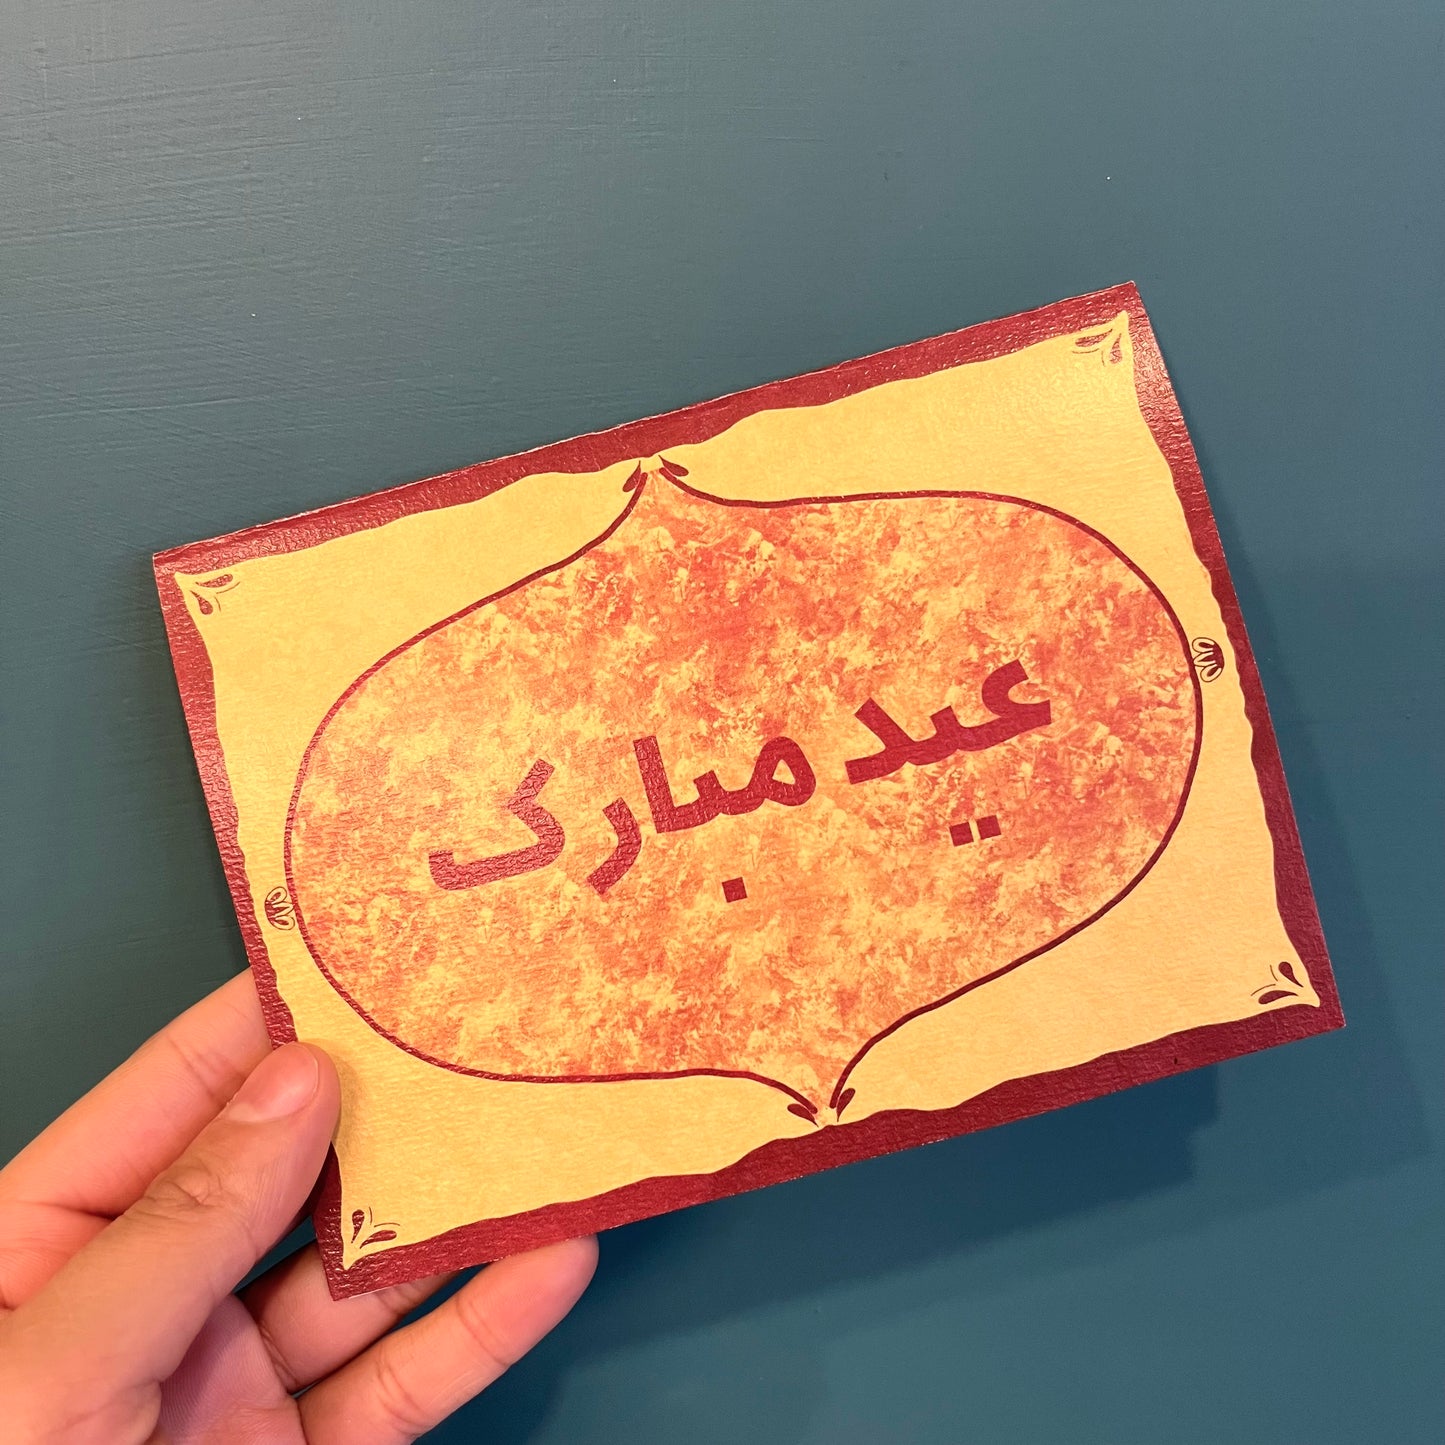 عید مبارک